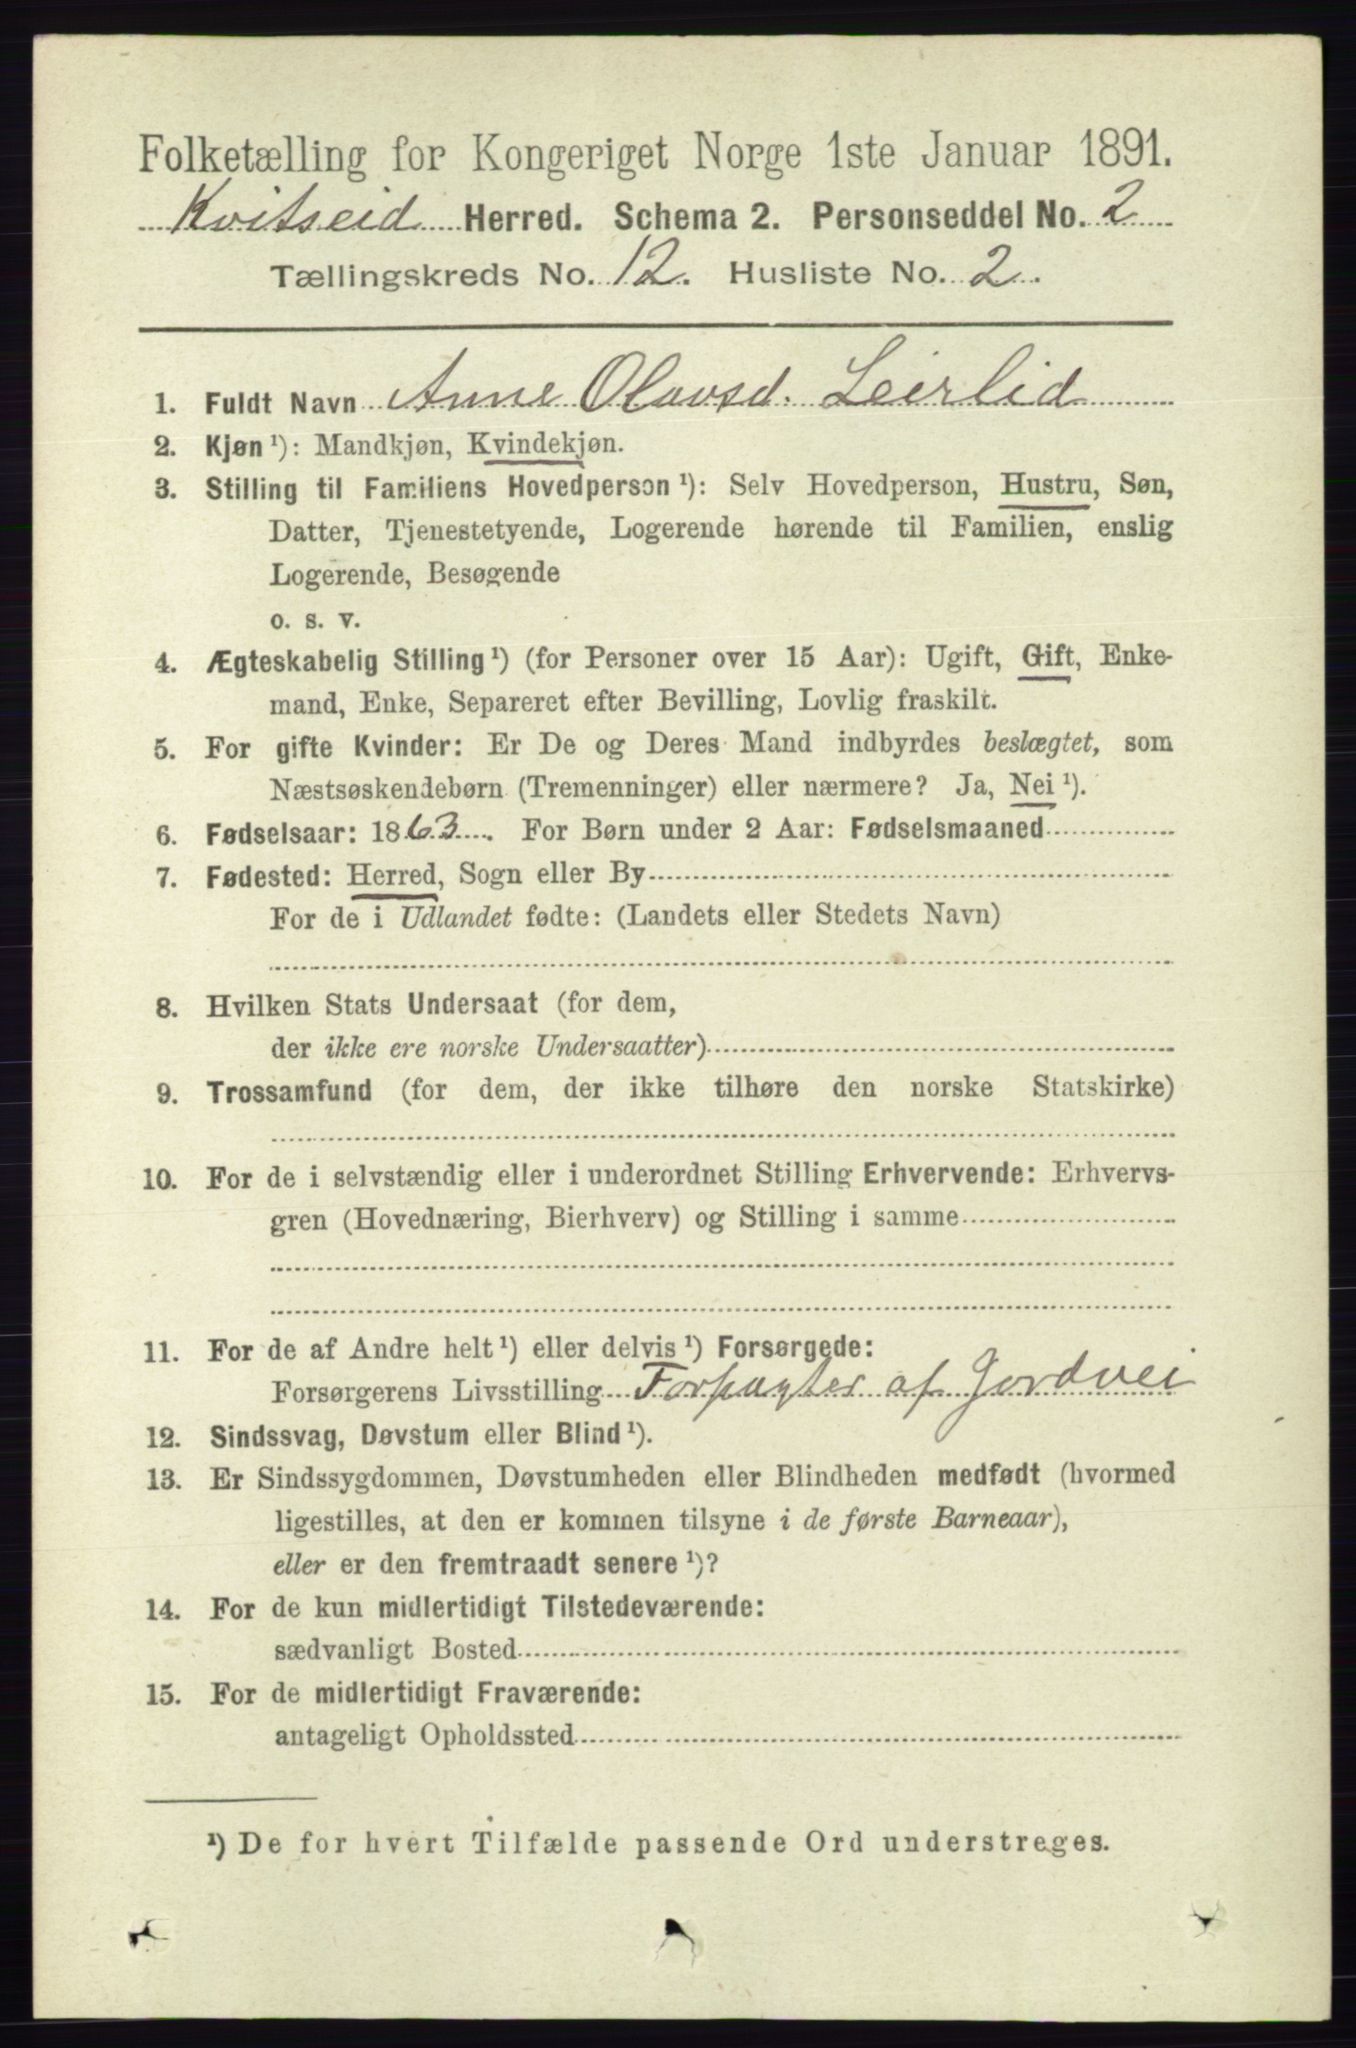 Folketælling for Kongeriget Norge 1ste Januar 1891.
Kvitseid Herred. Schema 2. Personseddel No. 2
Tællingskreds No. 12. Husliste No. 2.
1. Fuldt Navn Anne Olavsd. Leirlid
2. Kjøn¹): Mandkjøn, Kvindekjøn.
3. Stilling til Familiens Hovedperson¹): Selv Hovedperson, Hustru, Søn,
Datter, Tjenestetyende, Logerende hørende til Familien, enslig
Logerende, Besøgende
o. s. v.
4. Ægteskabelig Stilling¹) (for Personer over 15 Aar): Ugift, Gift, Enke-
mand, Enke, Separeret efter Bevilling, Lovlig fraskilt.
5. For gifte Kvinder: Er De og Deres Mand indbyrdes beslægtet, som
Næstsøskendebørn (Tremenninger) eller nærmere? Ja, Nei¹).
6. Fødselsaar: 1863. For Børn under 2 Aar: Fødselsmaaned
7. Fødested: Herred, Sogn eller By
For de i Udlandet fødte: (Landets eller Stedets Navn)
8. Hvilken Stats Undersaat (for dem,
der ikke ere norske Undersaatter)
9. Trossamfund (for dem, der ikke tilhøre den norske Statskirke)
10. For de i selvstændig eller i underordnet Stilling Erhvervende: Erhvervs-
gren (Hovednæring, Bierhverv) og Stilling i samme
11. For de af Andre helt¹) eller delvis¹) Forsørgede:
Forsørgerens Livsstilling Forpagter af Jordvei
12. Sindssvag, Døvstum eller Blind¹).
13. Er Sindssygdommen, Døvstumheden eller Blindheden medfødt (hvormed
ligestilles, at den er kommen tilsyne i de første Barneaar),
eller er den fremtraadt senere¹)?
14. For de kun midlertidigt Tilstedeværende:
sædvanligt Bosted
15. For de midlertidigt Fraværende:
antageligt Opholdssted
¹) De for hvert Tilfælde passende Ord understreges.